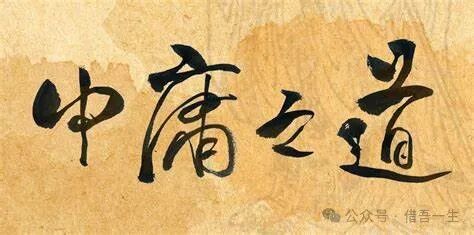 中庸之道
公众号·借吾一生